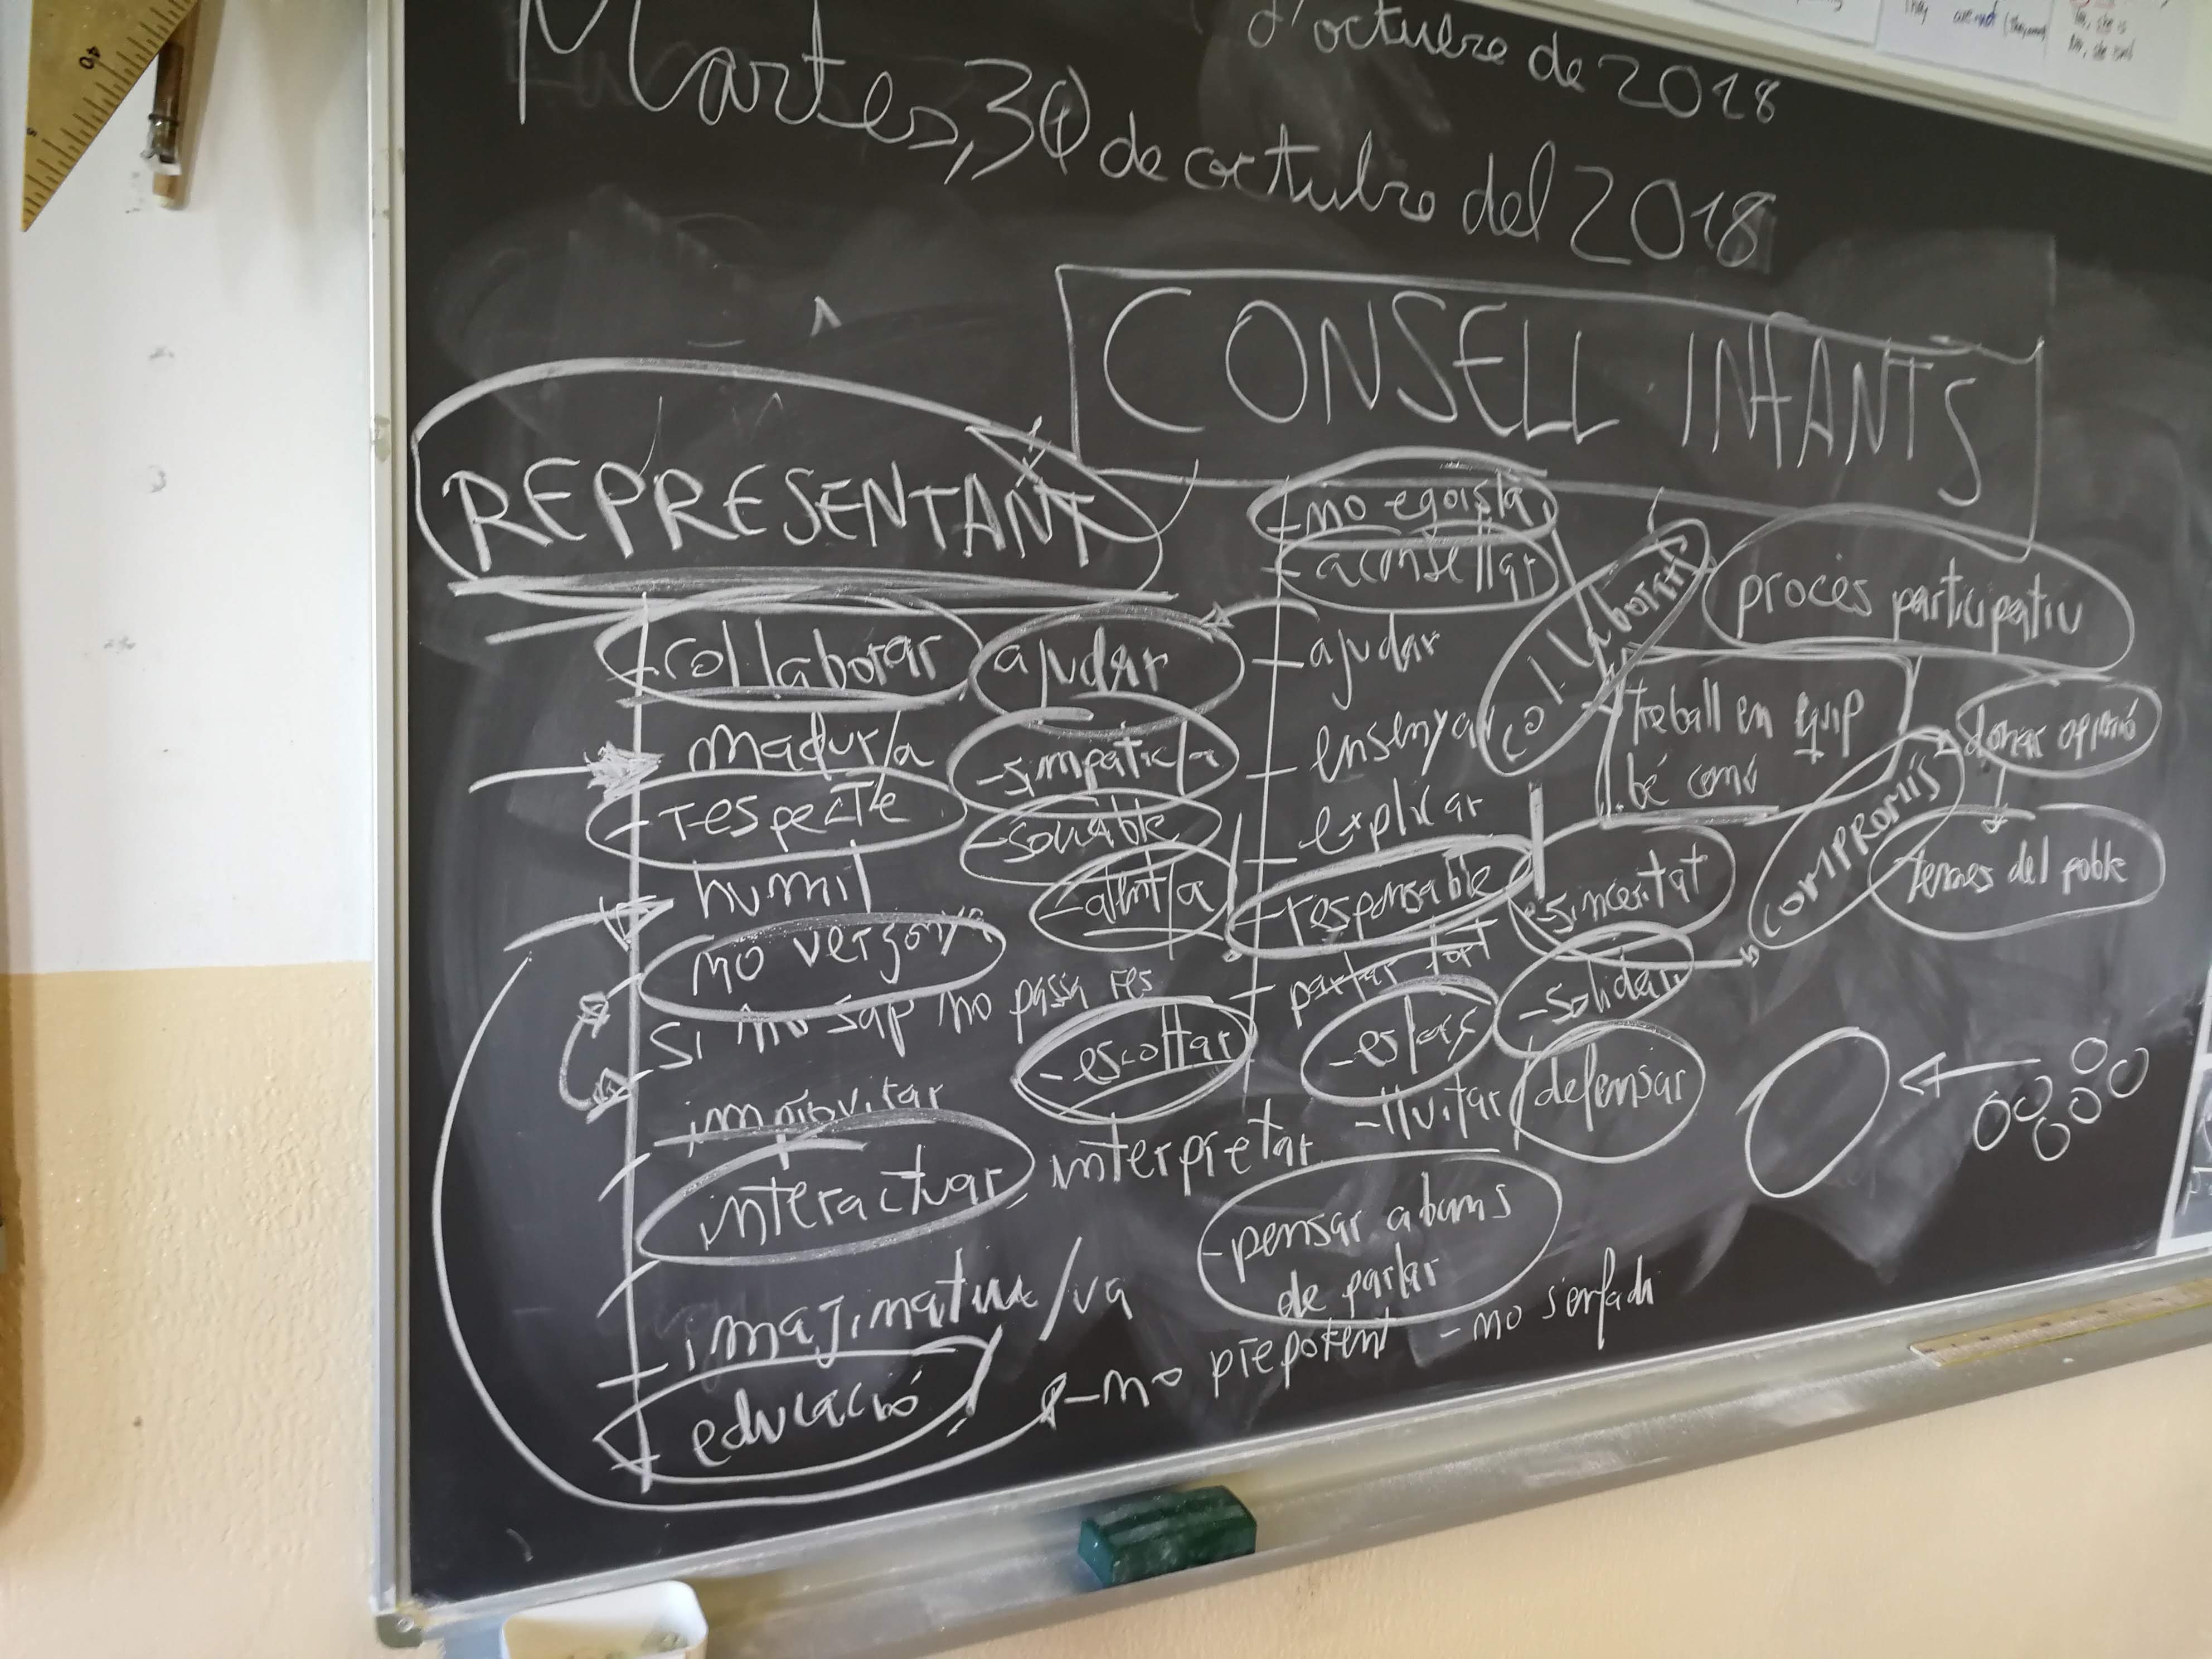 d'octubre de 2018
Martes, 30 de octubre del 2018
CONSELL INFANTS
REPRESENTANT
- no egoista
- aconsellar
- ajudar
- ensenyar
- explicar
- responsable
- parlar fort
- escoltar
- esforç
- lluitar
- collaborar
ajudar
madur/a
- simpatic/a
- respecte
- sociable
humil
- atent/a
no vergonya
si no sap no passa res
improvitar
interactuar
interpretar
- imajinatiu/va
educació
- pensar abans
de parlar
- no prepotent - no s'enfadi
col·laboració
procés participatiu
treball en equip
bé comú
donar opinió
COMPROMÍS
temes del poble
- sinceritat
- solidari
defensar